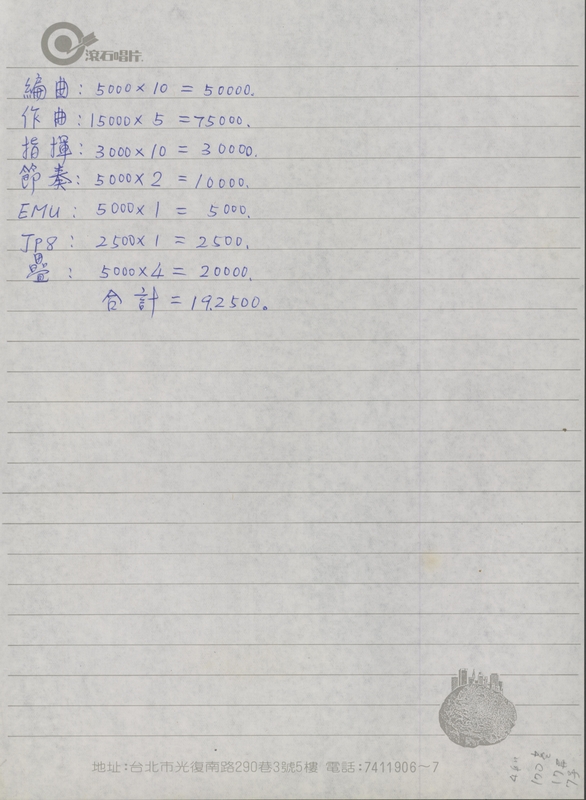 滾石唱片
編曲: 5000×10 = 50000.
作曲: 15000×5 =75000.
指揮: 3000×10 = 30000.
節奏: 5000×2 =10000.
EMU: 5000×1 = 5000.
Jp8: 2500×1 = 2500.
疊: 5000×4 = 20000.
合計 = 19.2500。
地址:台北市光復南路290巷3號5樓 電話:7411906~7